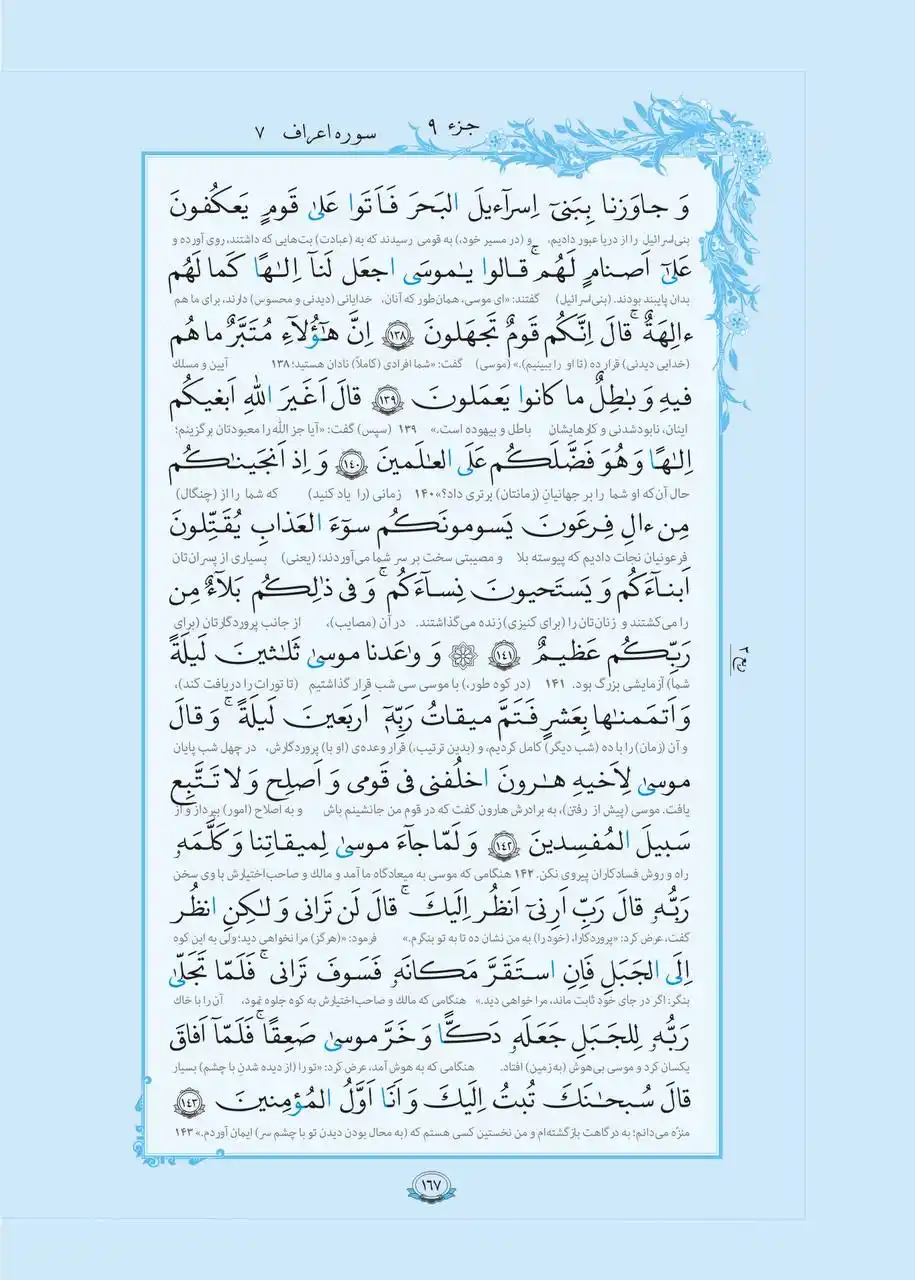 جزء ۹
سوره اعراف ۷
وَ جاوَزنا بِبَنىٓ اِسرآءيلَ البَحرَ فَاَتَوا عَلىٰ قَومٍ يَعكُفونَ
بنی‌اسرائیل را از دریا عبور دادیم، و (در مسیر خود،) به قومی رسیدند که به (عبادت) بت‌هایی که داشتند، روی آورده و
عَلىٰٓ اَصنامٍ لَهُم ۚ قالوا يٰموسَى اجعَل لَنآ اِلٰهًا كَما لَهُم
بدان پایبند بودند. (بنی‌اسرائیل) گفتند: «ای موسی، همان‌طور که آنان، خدایانی (دیدنی و محسوس) دارند، برای ما هم
ءالِهَةٌ ۚ قالَ اِنَّكُم قَومٌ تَجهَلونَ ﴿١٣٨﴾ اِنَّ هٰٓؤُلآءِ مُتَبَّرٌ ما هُم
(خدایی دیدنی) قرار ده (تا او را ببینیم).» (موسی) گفت: «شما افرادی (کاملاً) نادان هستید؛ ۱۳۸ آیین و مسلک
فيهِ وَ بٰطِلٌ ما كانوا يَعمَلونَ ﴿١٣٩﴾ قالَ اَغَيرَ اللّٰهِ اَبغيكُم
اینان، نابودشدنی و کارهایشان باطل و بیهوده است.» ۱۳۹ (سپس) گفت: «آیا جز الله را معبودتان برگزینم؛
اِلٰهًا وَ هُوَ فَضَّلَكُم عَلَى العٰلَمينَ ﴿١٤٠﴾ وَ اِذ اَنجَينٰكُم
حال آن‌که او شما را بر جهانیانِ (زمانتان) برتری داد؟» ۱۴۰ زمانی (را یاد کنید) که شما را از (چنگال)
مِن ءالِ فِرعَونَ يَسومونَكُم سوٓءَ العَذابِ يُقَتِّلونَ
فرعونیان نجات دادیم که پیوسته بلا و مصیبتی سخت بر سر شما می‌آوردند؛ (یعنی) بسیاری از پسران‌تان
اَبنآءَكُم وَ يَستَحيونَ نِسآءَكُم ۚ وَ فى ذٰلِكُم بَلآءٌ مِن
را می‌کشتند و زنان‌تان را (برای کنیزی) زنده می‌گذاشتند. در آن (مصایب)، از جانب پروردگارتان (برای
رَبِّكُم عَظيمٌ ﴿١٤١﴾ ۞ وَ وٰعَدنا موسىٰ ثَلٰثينَ لَيلَةً
شما) آزمایشی بزرگ بود. ۱۴۱ (در کوه طور،) با موسی سی شب قرار گذاشتیم (تا تورات را دریافت کند)،
وَ اَتمَمنٰها بِعَشرٍ فَتَمَّ ميقاتُ رَبِّهٖٓ اَربَعينَ لَيلَةً ۚ وَ قالَ
و آن (زمان) را با ده (شب دیگر) کامل کردیم، و (بدین ترتیب،) قرار وعده‌ی (او با) پروردگارش، در چهل شب پایان
موسىٰ لِاَخيهِ هٰرونَ اخلُفنى فى قَومى وَ اَصلِح وَ لا تَتَّبِع
یافت. موسی (پیش از رفتن)، به برادرش هارون گفت که در قوم من جانشینم باش و به اصلاح (امور) بپرداز و از
سَبيلَ المُفسِدينَ ﴿١٤٢﴾ وَ لَمّا جآءَ موسىٰ لِميقاتِنا وَ كَلَّمَهٗ
راه و روش فسادکاران پیروی نکن. ۱۴۲ هنگامی که موسی به میعادگاه ما آمد و مالک و صاحب‌اختیارش با وی سخن
رَبُّهٗ قالَ رَبِّ اَرِنىٓ اَنظُر اِلَيكَ ۚ قالَ لَن تَرانى وَ لٰكِنِ انظُر
گفت، عرض کرد: «پروردگارا، (خود را) به من نشان ده تا به تو بنگرم.» فرمود: «(هرگز) مرا نخواهی دید؛ ولی به این کوه
اِلَى الجَبَلِ فَاِنِ استَقَرَّ مَكانَهٗ فَسَوفَ تَرانى ۚ فَلَمّا تَجَلّىٰ
بنگر: اگر در جای خود ثابت ماند، مرا خواهی دید.» هنگامی که مالک و صاحب‌اختیارش به کوه جلوه نمود، آن را با خاک
رَبُّهٗ لِلجَبَلِ جَعَلَهٗ دَكًّا وَ خَرَّ موسىٰ صَعِقًا ۚ فَلَمّآ اَفاقَ
یکسان کرد و موسی بی‌هوش (به زمین) افتاد. هنگامی که به هوش آمد، عرض کرد: «تو را (از دیده شدن با چشم) بسیار
قالَ سُبحٰنَكَ تُبتُ اِلَيكَ وَ اَنَا اَوَّلُ المُؤمِنينَ ﴿١٤٣﴾
منزّه می‌دانم؛ به درگاهت بازگشته‌ام و من نخستین کسی هستم که (به محال بودن دیدن تو با چشم سر) ایمان آوردم.» ۱۴۳
ربع ۲
۱۶۷